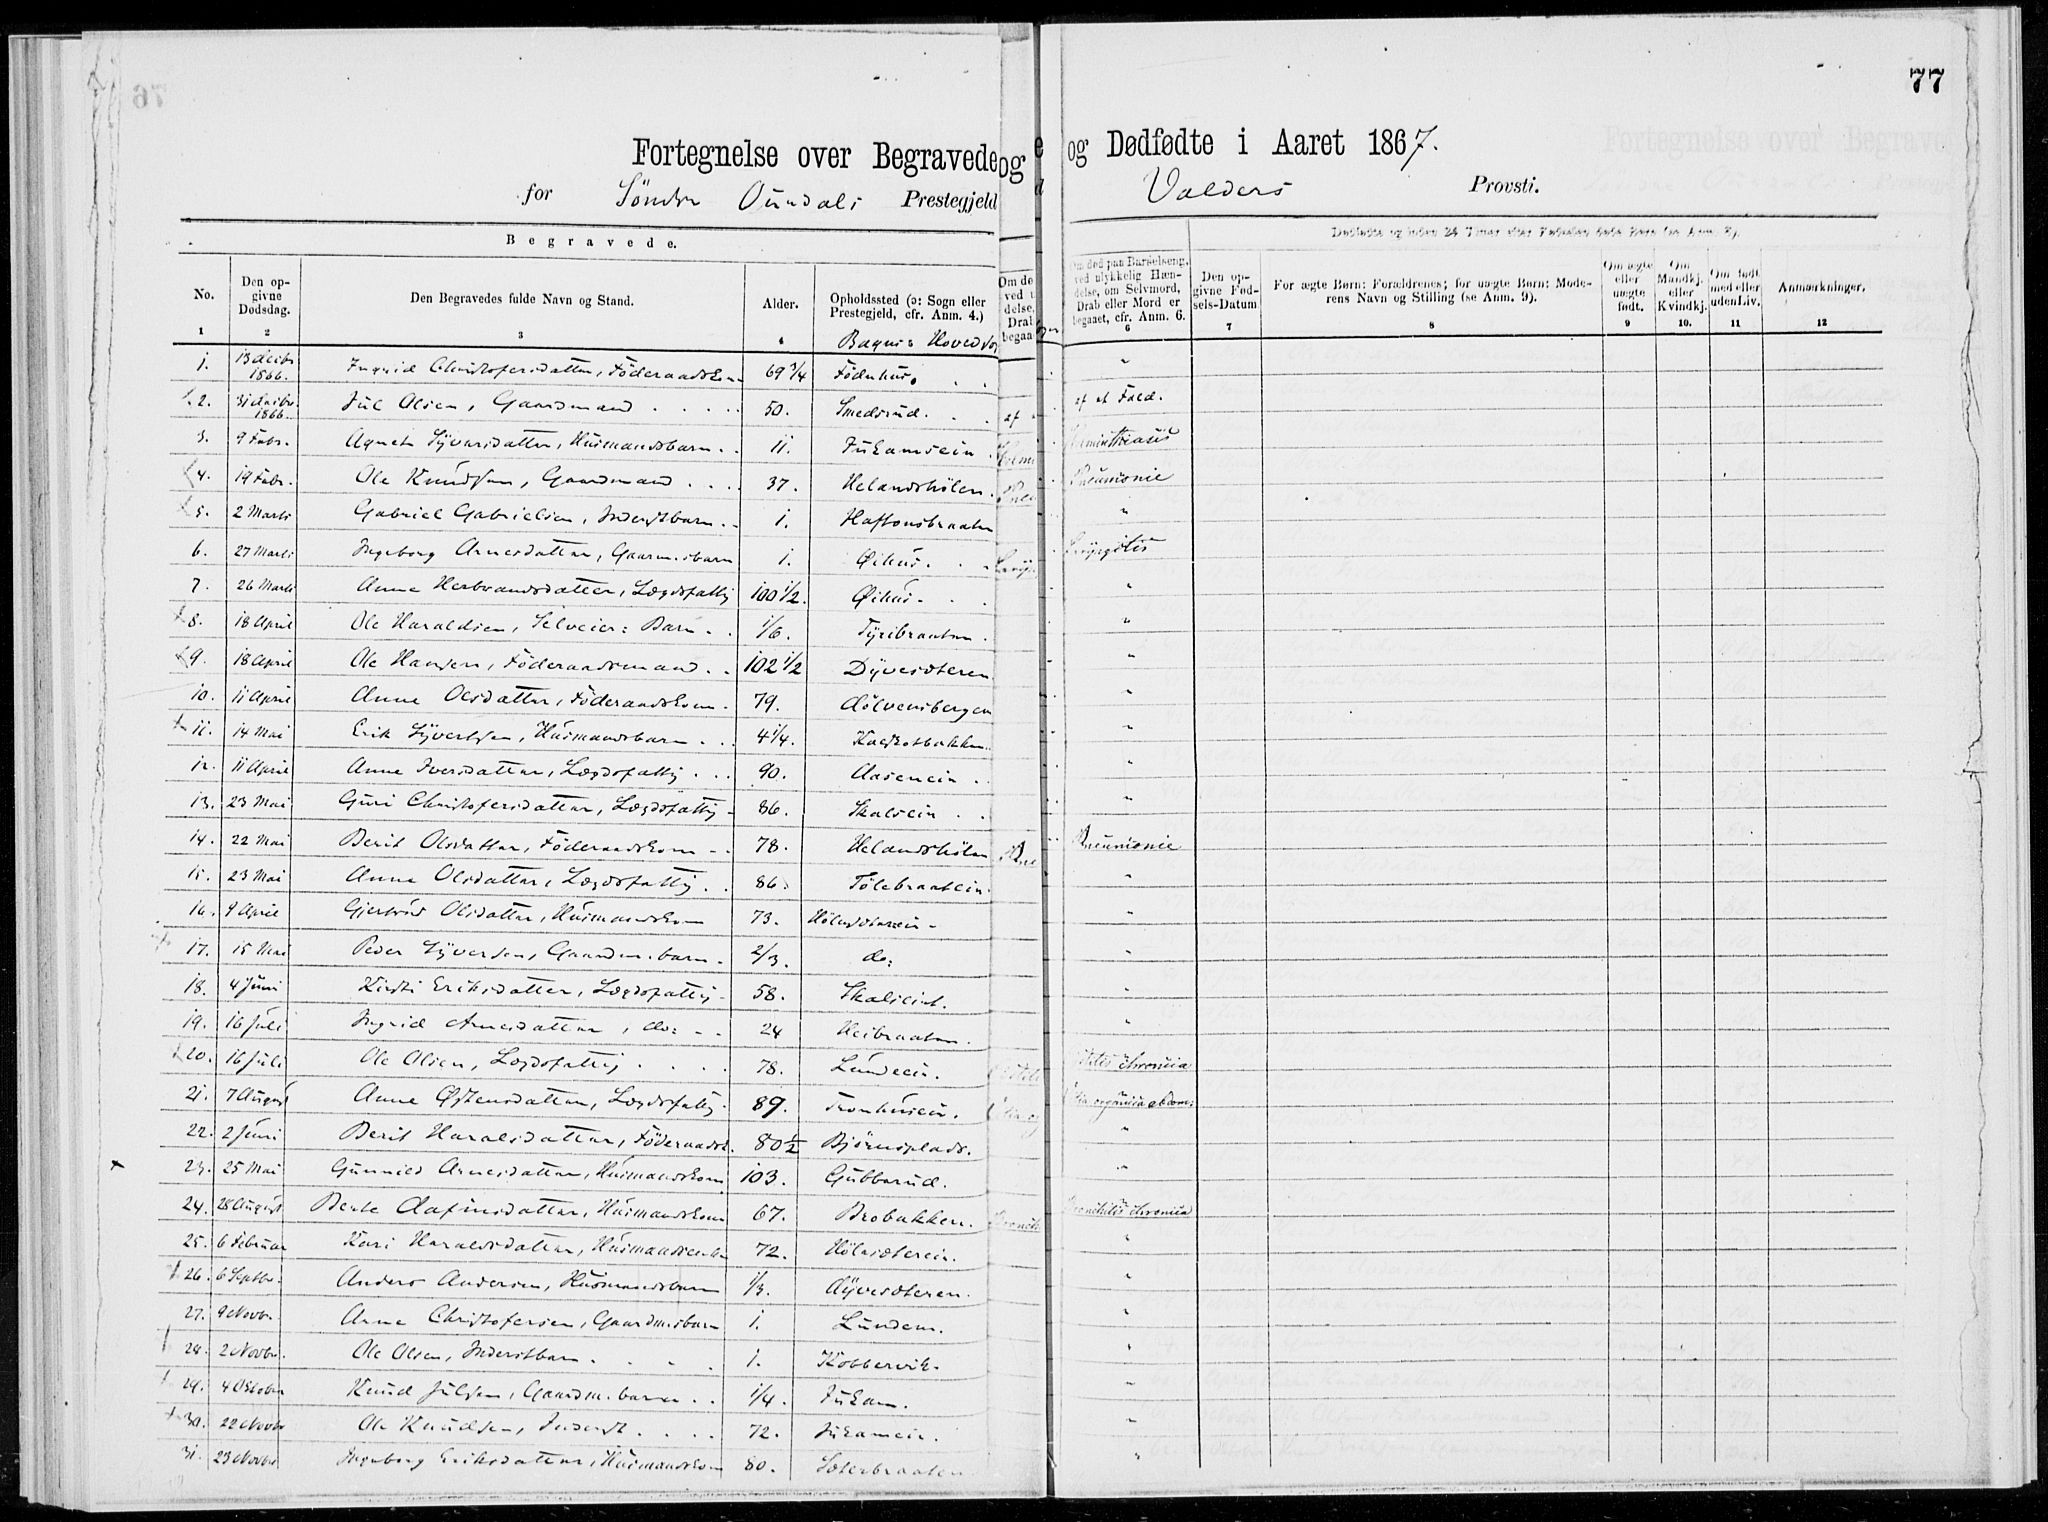 77
Fortegnelse over Begravede og Dødfødte i Aaret 1867.
for Søndre Prestegjeld Valders Provsti.
Begravede.
Dødfødte og inden 24 Timer efter Fødselen døde Børn (se Anm. 8).
No. Den opgivne Dødsdag. Den Begravedes fulde Navn og Stand. Alder. Opholdssted (ɔ: Sogn eller Prestegjeld, cfr. Anm. 4.) Om død paa Barselseng, ved ulykkelig Hændelse, om Selvmord, Drab eller Mord er begaaet, cfr. Anm. 6. Den opgivne Fødsels-Datum For ægte Børn: Forældrenes; for uægte Børn: Moderens Navn og Stilling (se Anm. 9). Om ægte eller uægte født. Om Mandkj. eller Kvindkj. Om født med eller uden Liv. Anmærkninger.
1 2 3 4 6 7 8 9 10. 11 12
Bagns Hoveds
1. 13 decbr 1866. Ingrid Christofersdatter, Föderaadskone 69 3/4 Födnhus. "
2. 31 decbr 1866. Jul Olsen, Gaardmand 50. Smedsrud. af et Fald.
3. 9 Febr. Agneth Syversdatter, Husmandsbarn 11. Jukamsein Helminthiasis
4. 19 Febr. Ole Knudsen, Gaardmand 37. Helandshölen. Pneumonie
5. 2 Marts Gabriel Gabrielsen, Inderstbarn 1. "
6. 27 Marts Ingeborg Arnesdatter, Gaarmsbarn 1. Øihus. Laryngitis
7. 26 Marts Anne Herbrandsdatter, Lægdsfattig 100 1/2. Øihus. "
8. 18 April Ole Haraldsen, Selveier: Barn. 1/6. Tyribraaten. "
9. 18 April Ole Hansen, Föderaadsmand 102 1/2 Dyvesæteren. "
10. 11 April Anne Olsdatter, Föderaadskone. 79. "
11. 14 Mai Erik Syvertsen, Husmandsbarn 4 1/4. "
12. 11 April Anne Iversdatter, Lægdsfattig 90. Aaseneie "
13. 23 Mai Guri Christofersdatter, Lægdsfattig 86. Skalseie "
14. 22 Mai Berit Olsdatter, Föderaadskone 78. Helandshölen Pneumonie
15. 23 Mai Anne Olsdatter, Lægdsfattig 86. Tölebraateie. "
16. 9 April Gjertrud Olsdatter, Husmandskone 73. "
17. 15 Mai Peder Syversen, Gaardm. barn. 2/3. do: "
18. 4 Juni Kirsti Eriksdatter, Lægdsfattig 58. "
19. 16 Juli Ingrid Arnesdatter, do: 24 Heibraaten. "
20. 16 Juli Ole Olsen, Lægdsfattig 78. Lundeeie. chronica
21. 7 August Anne Østensdatter, Lægdsfattig. 89. Tronhuseie.
22. 2 Juni Berit Haraldsdatter, Föderaadsk. 80 1/2 Björnsplads. "
23. 25 Mai Gunnild Arnesdatter, Husmandskone 103. Gubberud. "
24. 28 August Berte Olafinsdatter, Husmandskone 67. Brobakken. Bronchitis chronica
25. 6 Februar Kari Haraldsdatter, 72. "
26. 6 Septbr. Anders Andersen, Husmandsbarn 1/3. Dyvesæteren. "
27. 9 Novbr. Anne Christofersen, Gaardmsbarn 1. Lundem. "
28. 2 Novbr. Ole Olsen, Inderstbarn. 1. Kobbervik. "
29. 4 October Knud Julsen, Gaardm. barn 1/4. Jukam. "
30. 22 Novbr Ole Knudsen, Inderst. 72. Jukameie. "
31. 23 Novbr Ingeborg Eriksdatter, Husmandskone 80. Sæterbraaten "